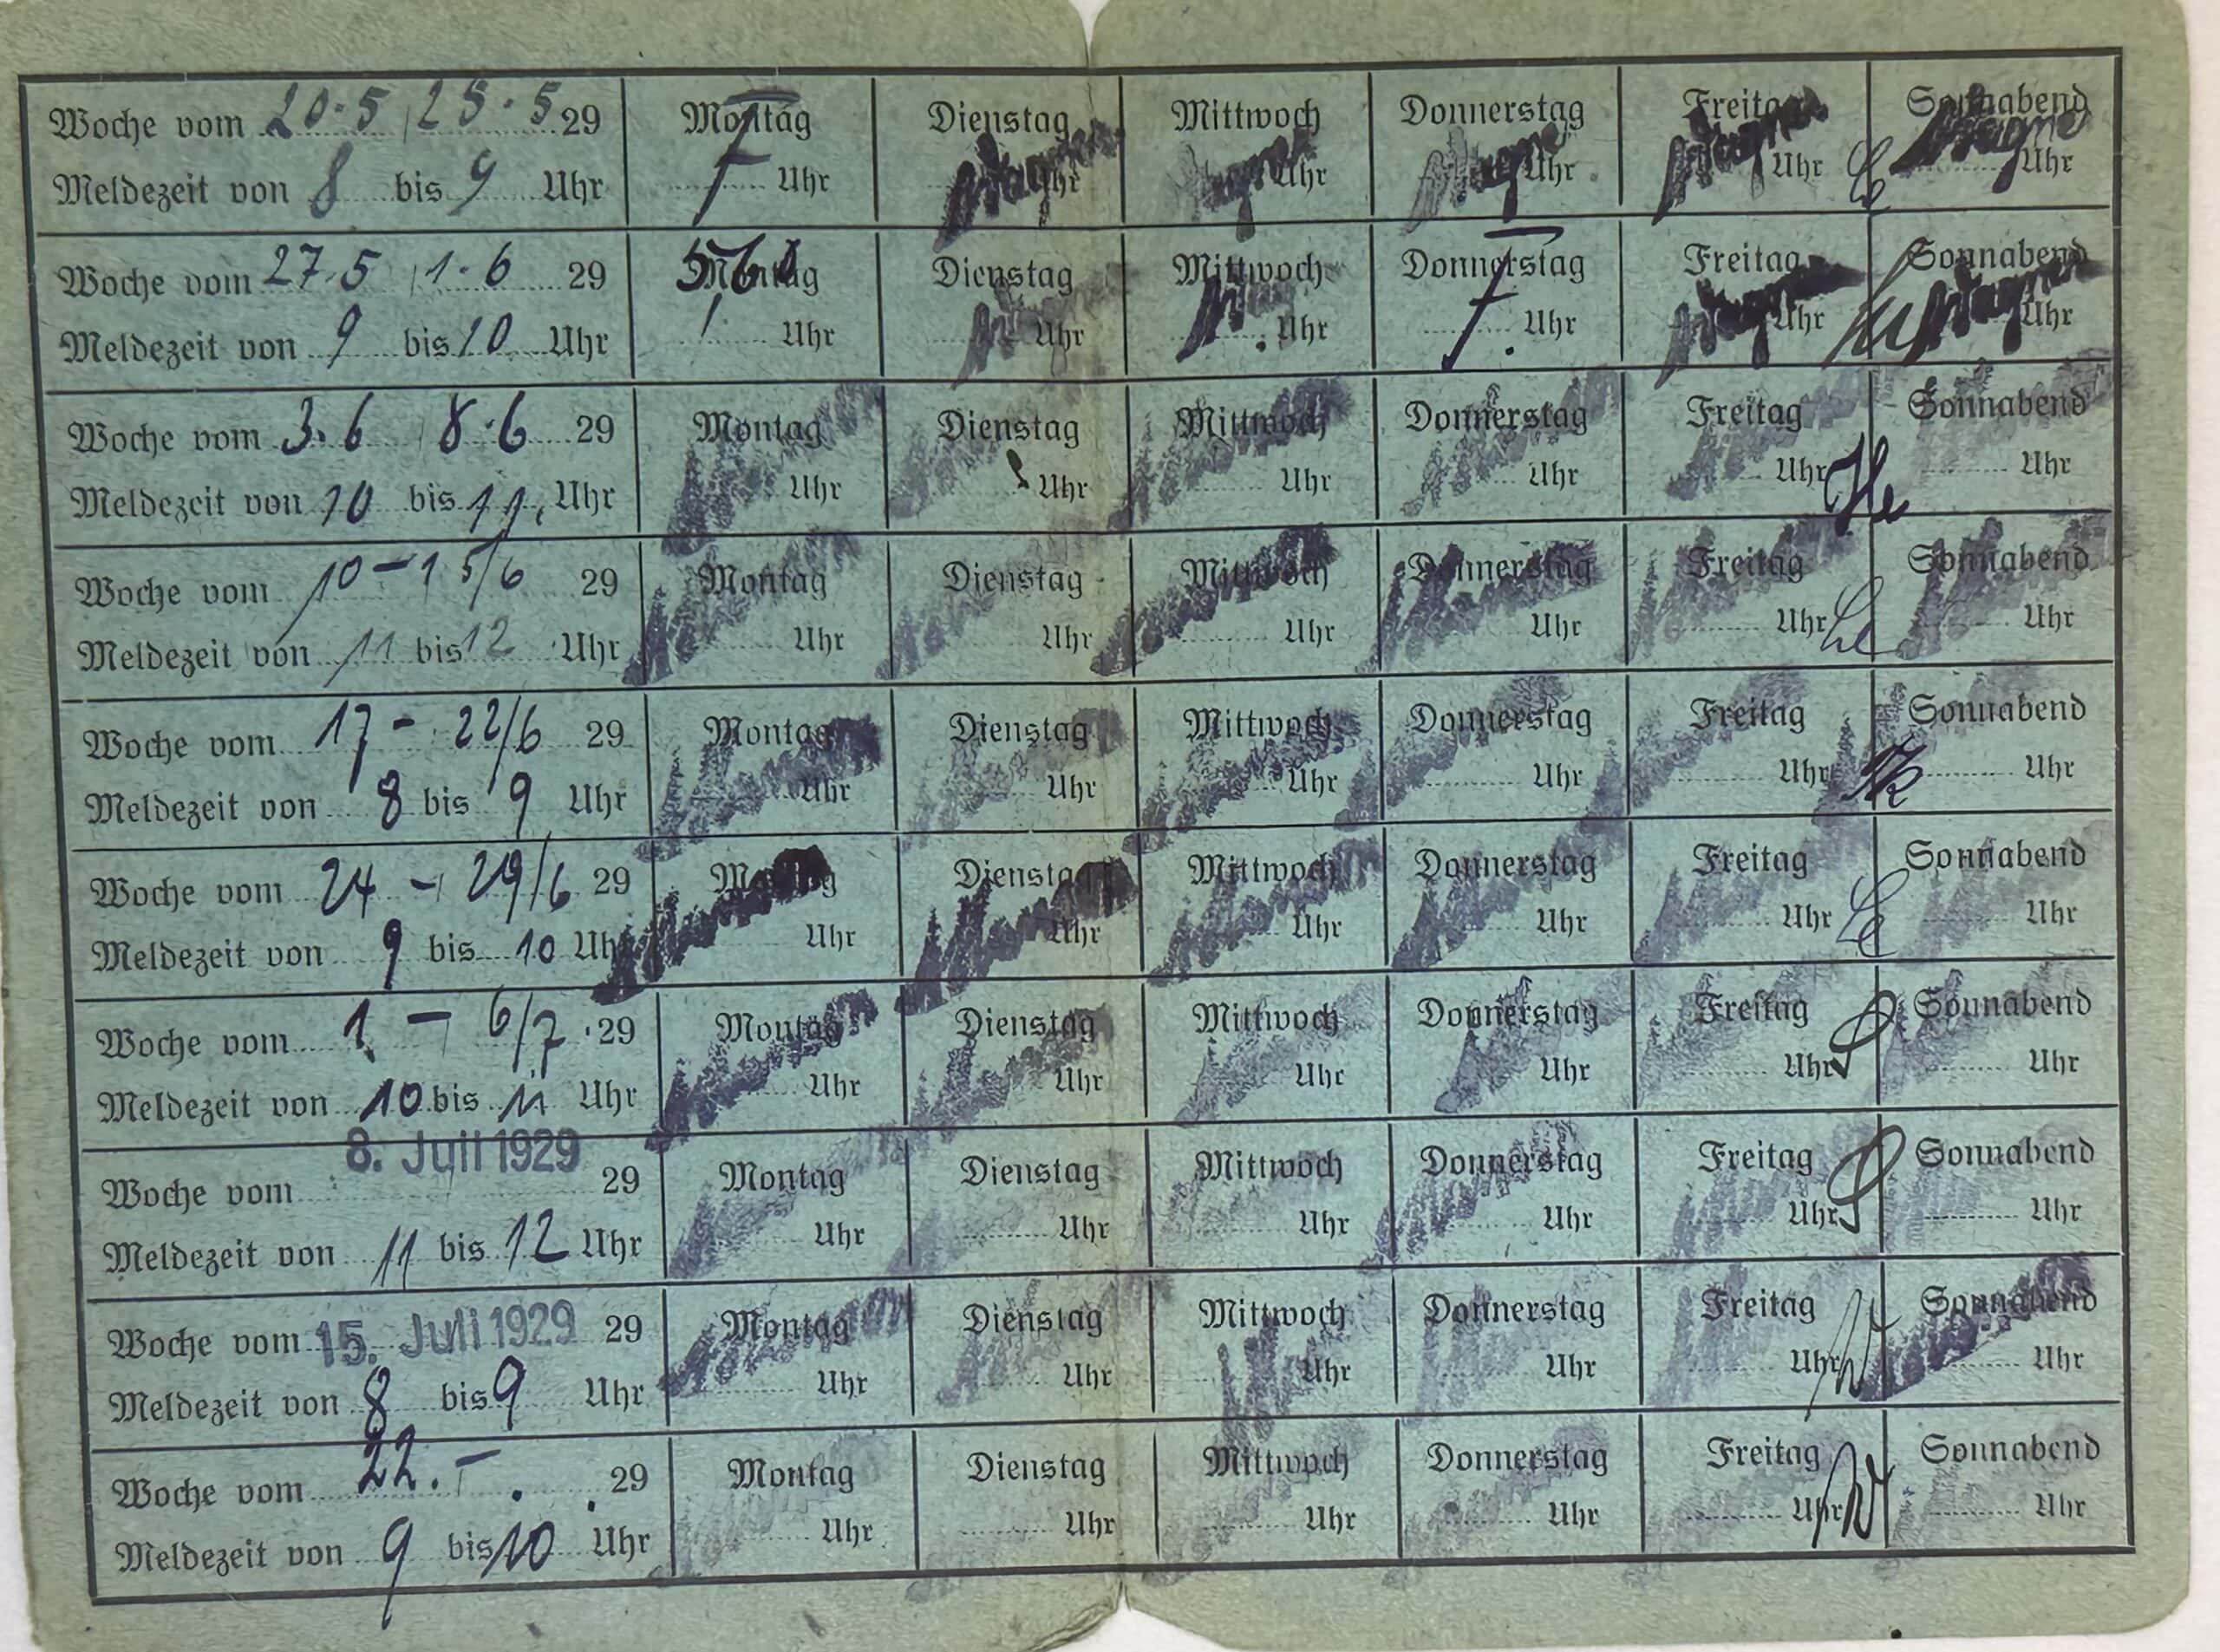 Woche vom 20.5 | 25.5 29 Montag Dienstag Mittwoch Donnerstag Freitag Sonnabend
Meldezeit von 8 bis 9 Uhr Uhr Uhr Uhr Uhr Uhr Uhr
Woche vom 27.5 | 1.6 29 Montag Dienstag Mittwoch Donnerstag Freitag Sonnabend
Meldezeit von 9 bis 10 Uhr Uhr Uhr Uhr Uhr Uhr Uhr
Woche vom 3.6 | 8.6 29 Montag Dienstag Mittwoch Donnerstag Freitag Sonnabend
Meldezeit von 10 bis 11. Uhr Uhr Uhr Uhr Uhr Uhr Uhr
Woche vom 10-15/6 29 Montag Dienstag Mittwoch Donnerstag Freitag Sonnabend
Meldezeit von 11 bis 12 Uhr Uhr Uhr Uhr Uhr Uhr Uhr
Woche vom 17 - 22/6 29 Montag Dienstag Mittwoch Donnerstag Freitag Sonnabend
Meldezeit von 8 bis 9 Uhr Uhr Uhr Uhr Uhr Uhr Uhr
Woche vom 24 - 29/6 29 Montag Dienstag Mittwoch Donnerstag Freitag Sonnabend
Meldezeit von 9 bis 10 Uhr Uhr Uhr Uhr Uhr Uhr Uhr
Woche vom 1. - 6/7 29 Montag Dienstag Mittwoch Donnerstag Freitag Sonnabend
Meldezeit von 10 bis 11 Uhr Uhr Uhr Uhr Uhr Uhr Uhr
8. Juli 1929
Woche vom 29 Montag Dienstag Mittwoch Donnerstag Freitag Sonnabend
Meldezeit von 11 bis 12 Uhr Uhr Uhr Uhr Uhr Uhr Uhr
Woche vom 15. Juli 1929 29 Montag Dienstag Mittwoch Donnerstag Freitag Sonnabend
Meldezeit von 8 bis 9 Uhr Uhr Uhr Uhr Uhr Uhr Uhr
Woche vom 22. - . 29 Montag Dienstag Mittwoch Donnerstag Freitag Sonnabend
Meldezeit von 9 bis 10 Uhr Uhr Uhr Uhr Uhr Uhr Uhr